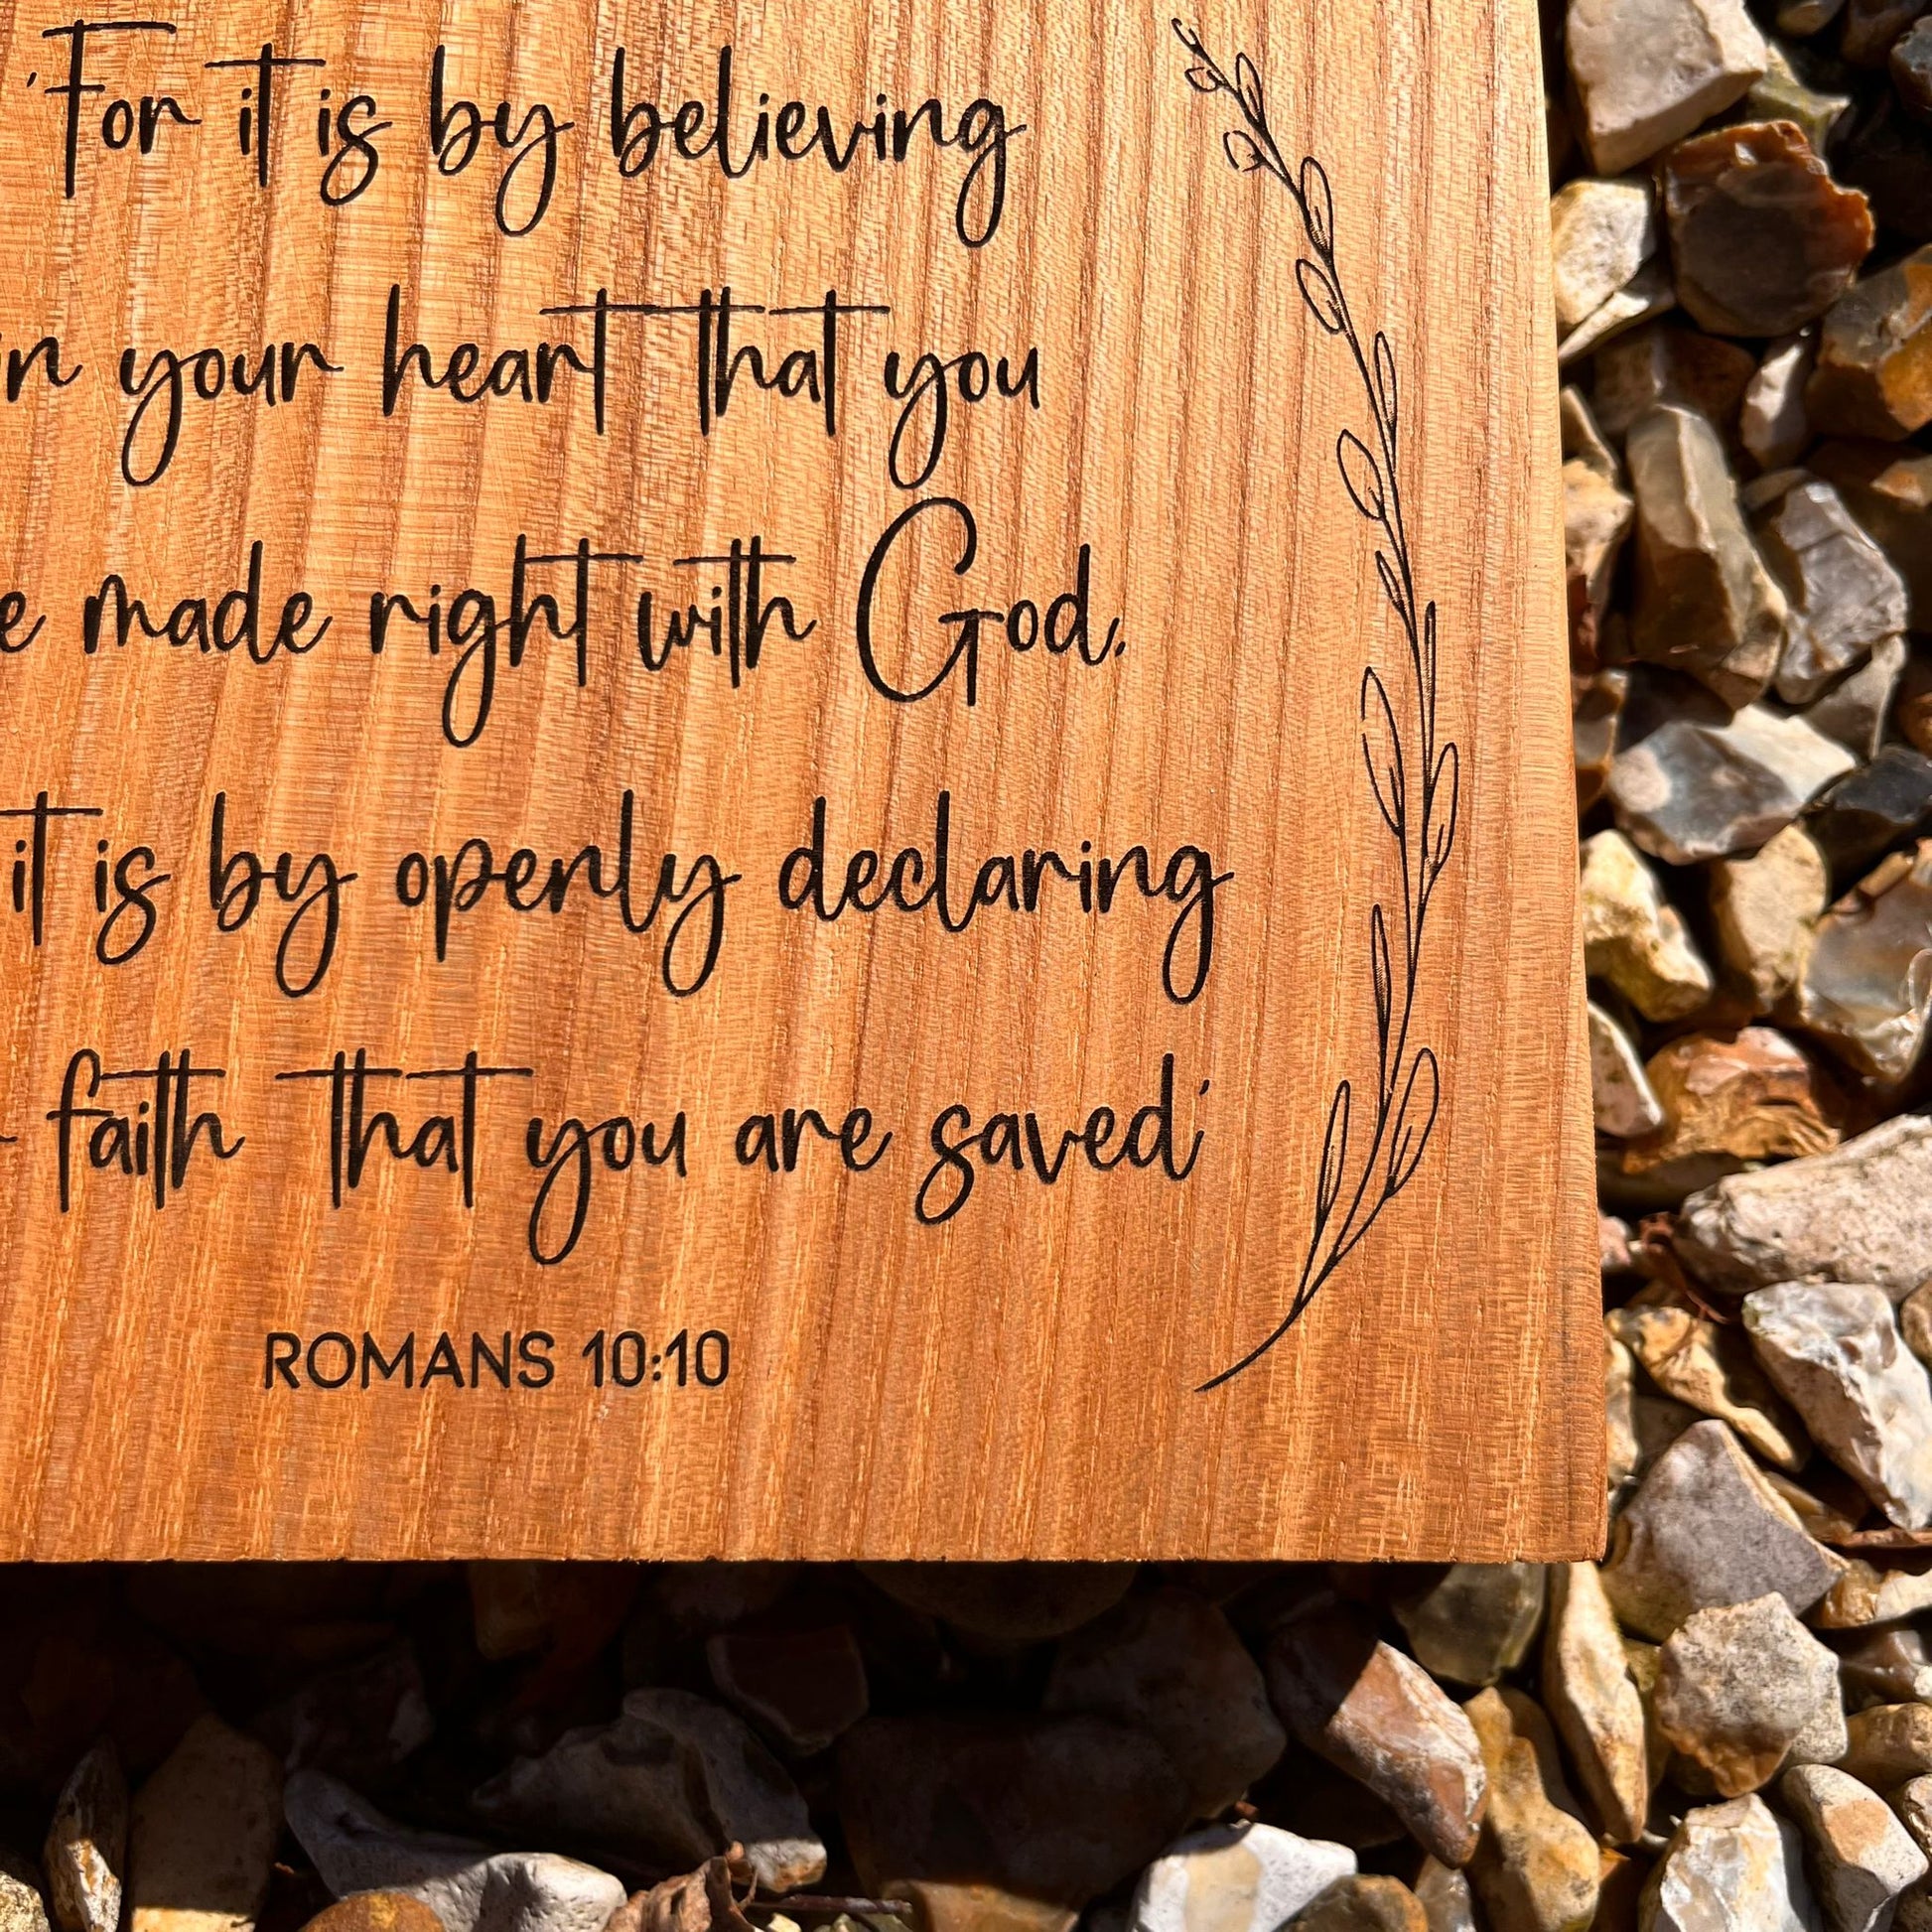 'For it is by believing
in your heart that you
made right with God,
it is by openly declaring
faith that you are saved'
ROMANS 10:10